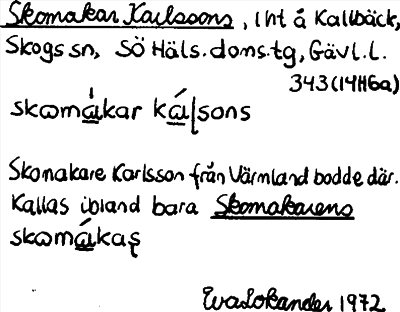 Skomakar Karlssons, lht å Kallbäck,
Skogs sn, Sö Häls. doms.tg, Gävl.l.
343 (14H6a)
skωmá̲kar ká̲ɭsons
Skomakare Karlsson från Värmland bodde där.
Kallas ibland bara Skomakarens
skωmá̲kaʂ
Eva Lokander 1972